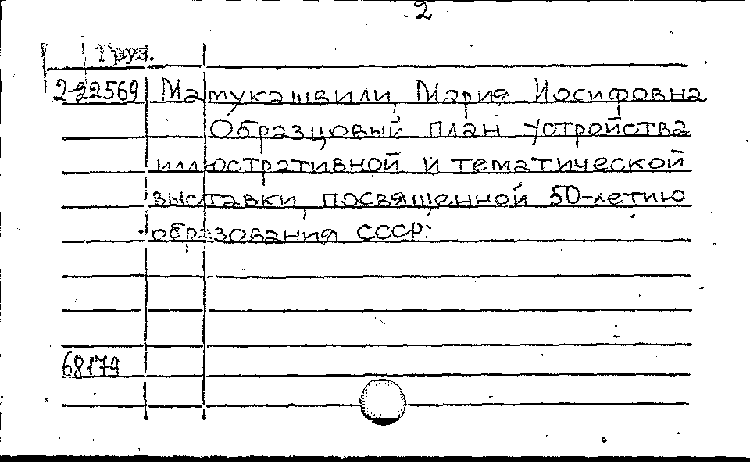 2
Груз.
2-22569 Матукашвили, Мария Иосифовна
Образцовый план устройства
иллюстративной и тематической
выставки, посвященной 50-летию
образования СССР.
68179